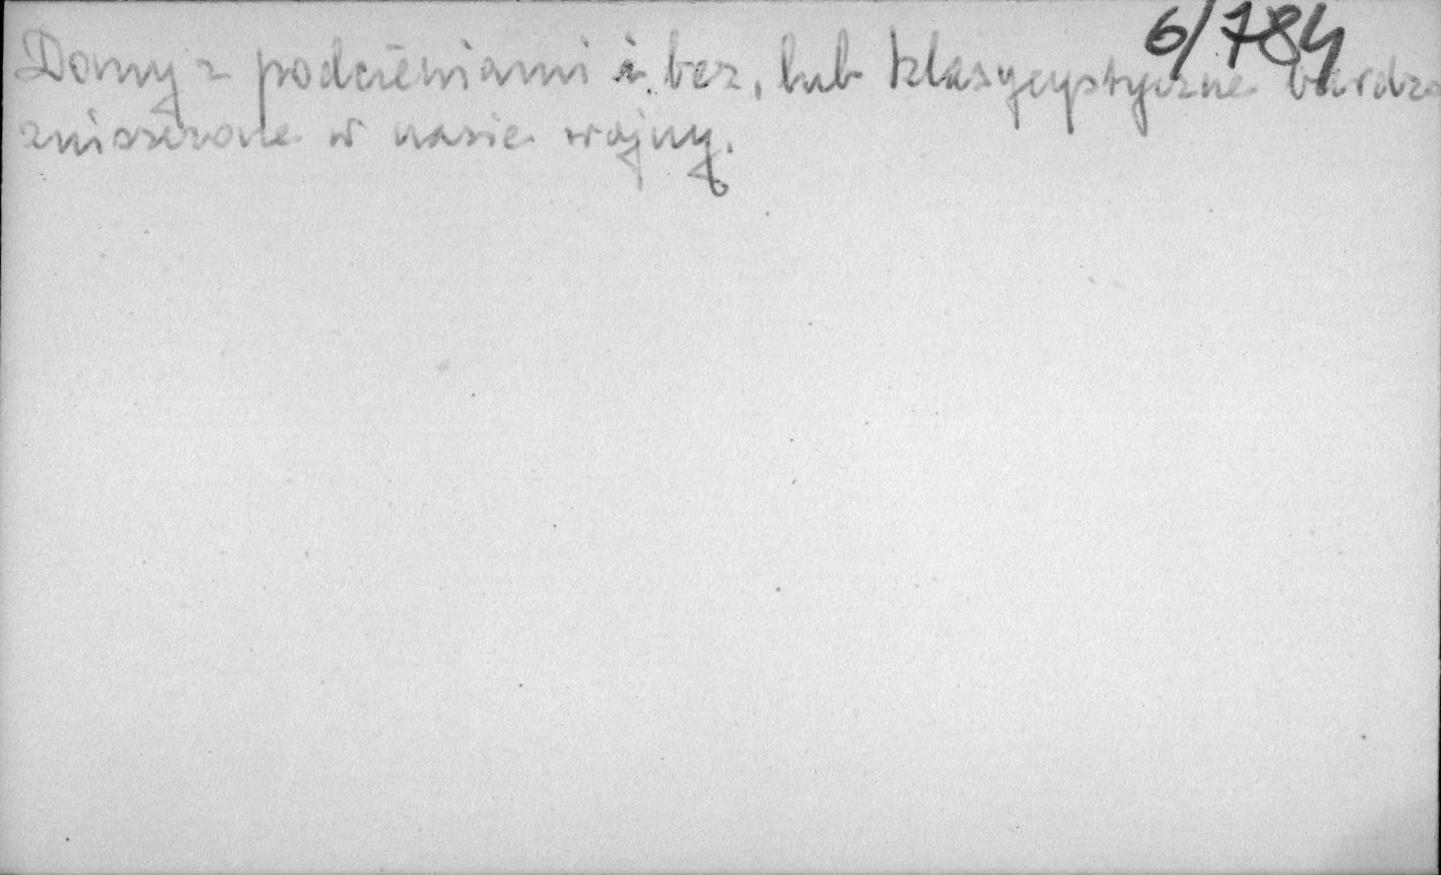 6/784
Domy z podcieniami i bez, lub klasycystyczne bardzo
zniszczone w czasie wojny.